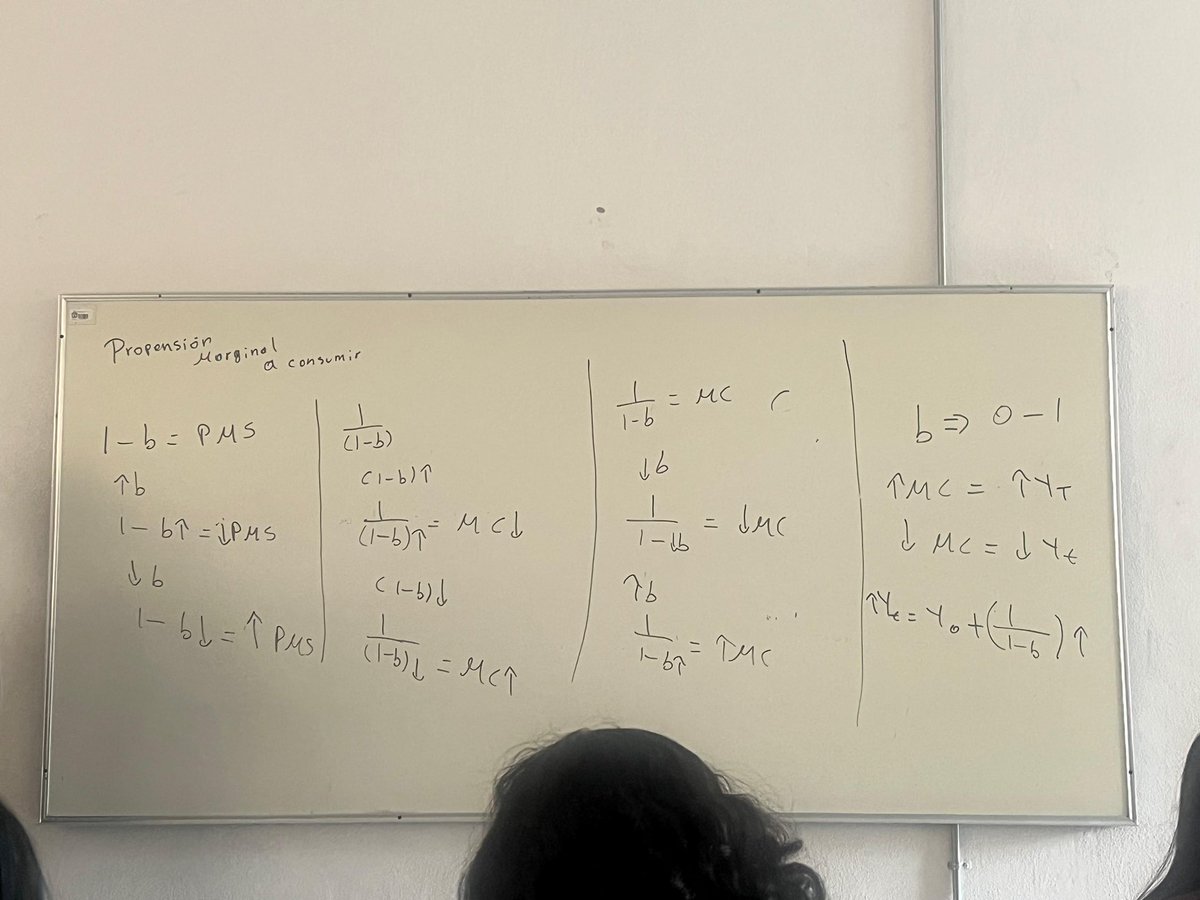 Propensión Marginal a consumir
1-b = PMS
↑b
1-b↑ = ↓PMS
↓b
1-b↓ = ↑PMS
1/(1-b)
(1-b)↑
1/(1-b)↑ = MC↓
(1-b)↓
1/(1-b)↓ = MC↑
1/1-b = MC (
↓b
1/1-↓b = ↓MC
↑b
1/1-b↑ = ↑MC
b ⇒ 0-1
↑MC = ↑YT
↓MC = ↓Yt
↑Yt = Yo + (1/1-b)↑